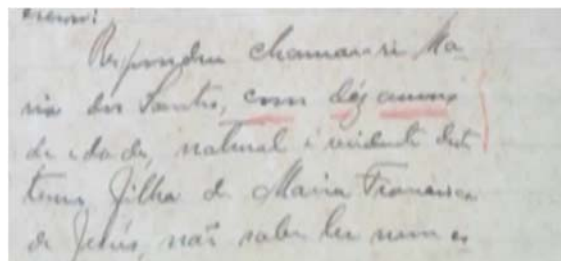 Respondeu chamar-se Ma-
ria dos Santos, com dez annos
de idade, natural e residente deste
termo, filha de Maria Francisca
de Jesús, não sabe ler nem es